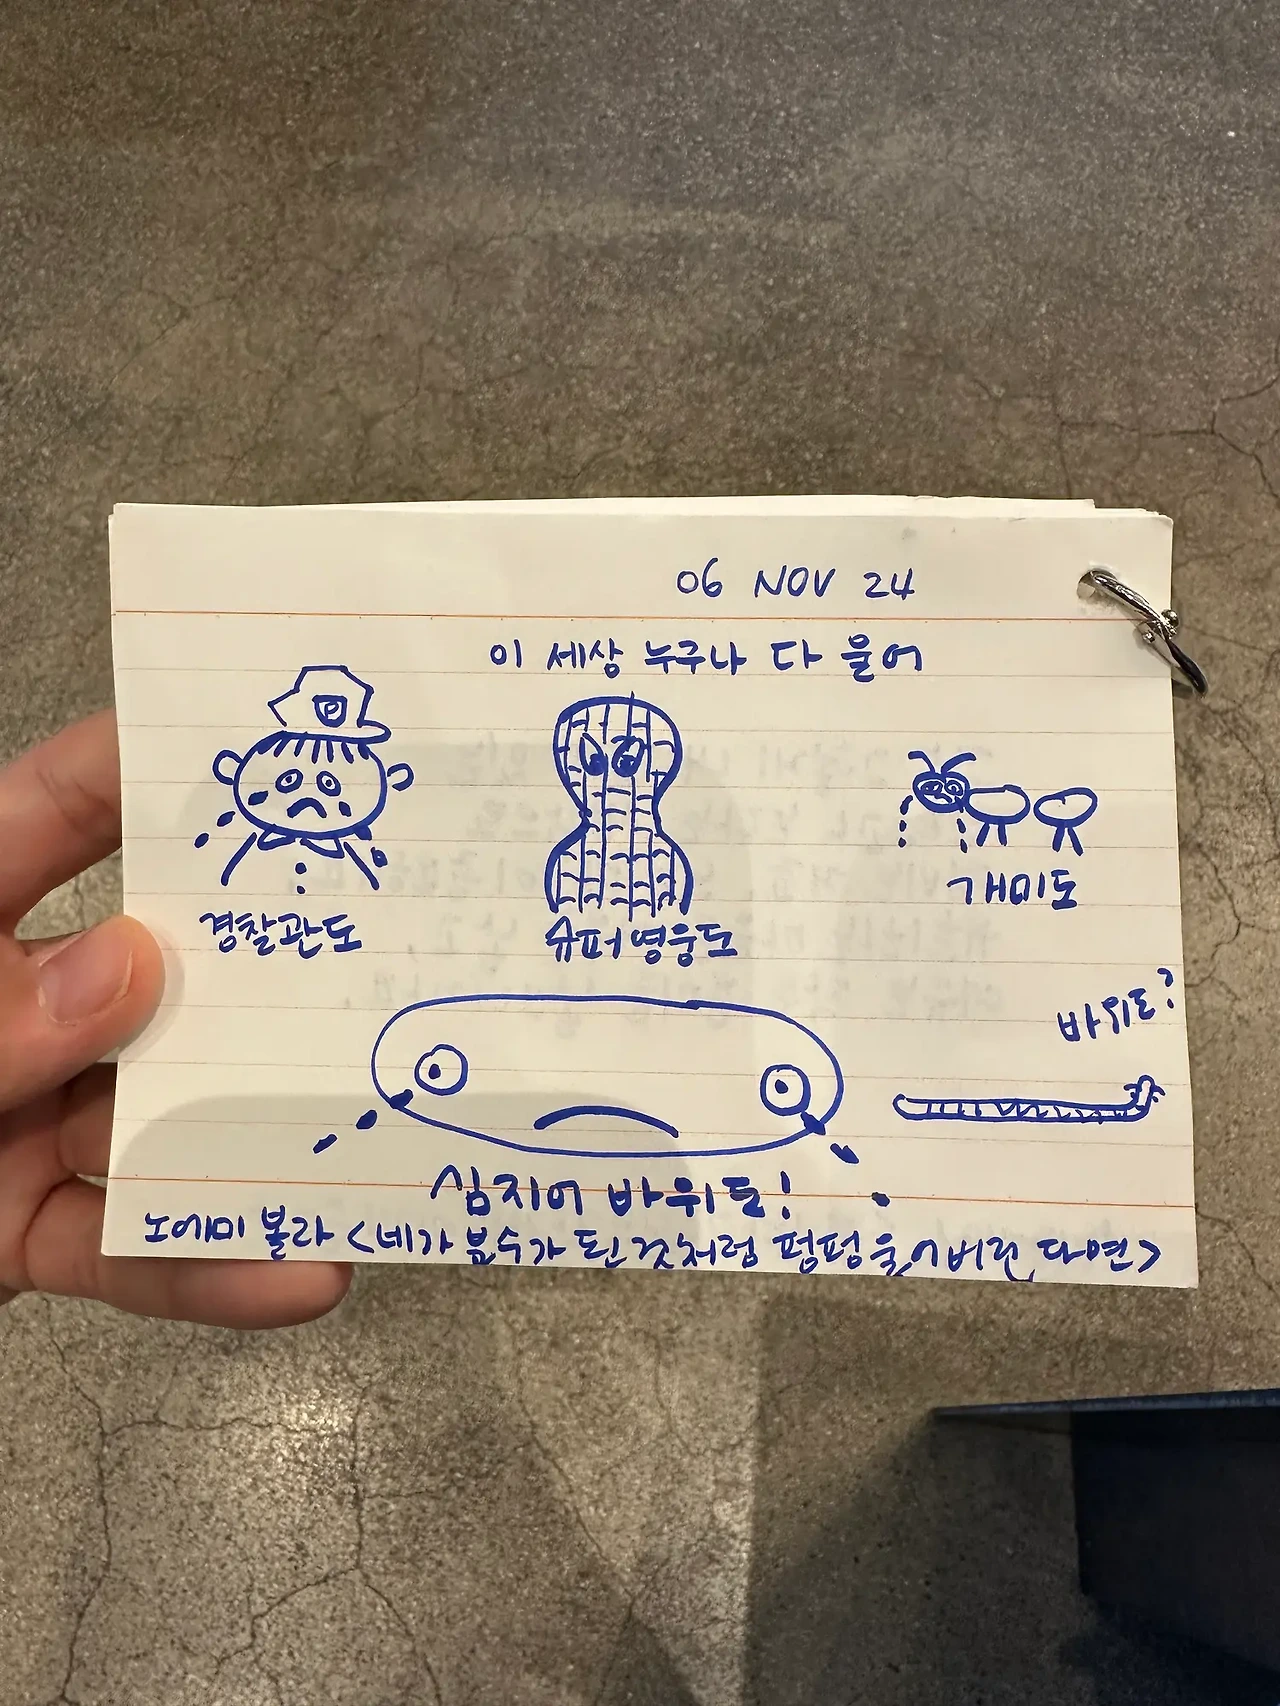 06 NOV 24
이 세상 누구나 다 울어
P
경찰관도
슈퍼영웅도
개미도
바위도?
심지어 바위도!
노에미 볼라 <네가 분수가 된것처럼 펑펑 울어버린 다면>